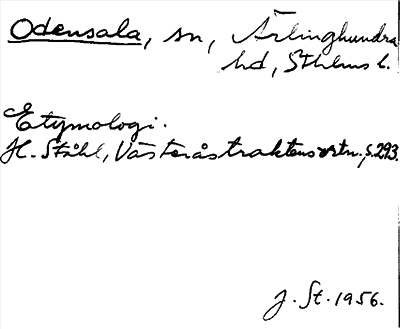 Odensala, sn, Ärlinghundra
hd, Sthlms l.
Etymologi.
H. Ståhl, Västeråstraktens ortn. s. 293.
J. St. 1956.